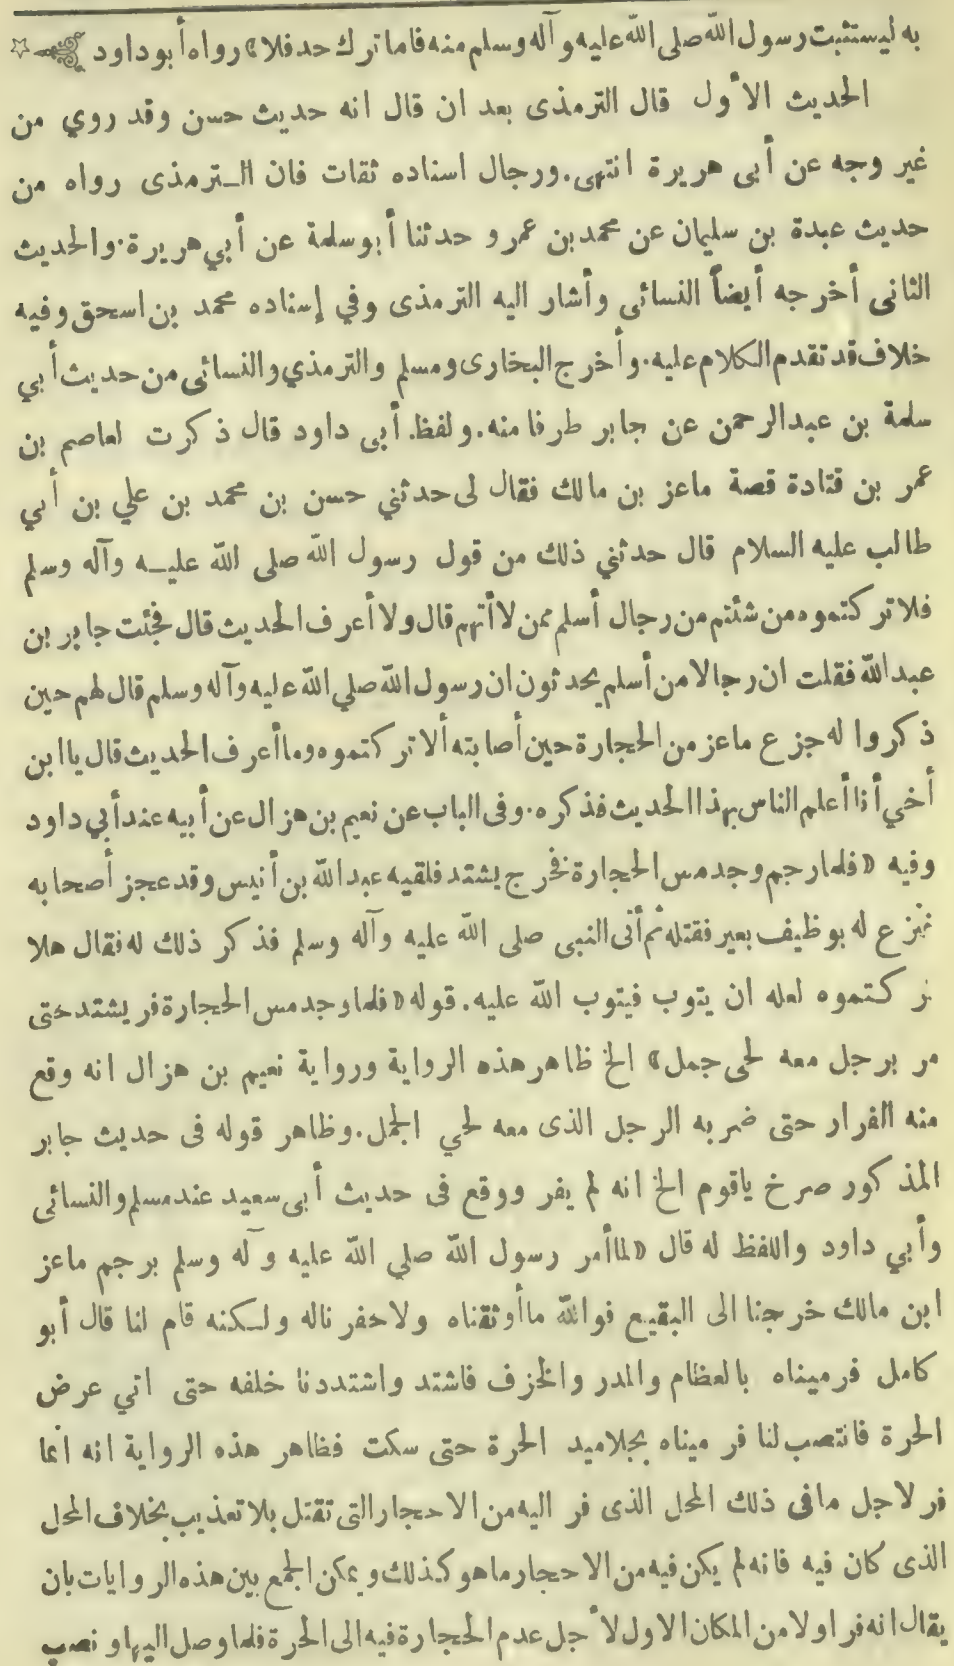 به ليستثبت رسول الله صلى الله عليه وآله وسلم منه فاما ترك حد فلا» رواه أبو داود
الحديث الأول قال الترمذى بعد ان قال انه حديث حسن وقد روي من
غير وجه عن أبى هريرة انتهى. ورجال اسناده ثقات فان الـترمذى رواه من
حديث عبدة بن سليمان عن محمد بن عمرو حدثنا أبو سلمة عن أبي هريرة. والحديث
الثانى أخرجه أيضاً النسائى وأشار اليه الترمذى وفي إسناده محمد بن اسحق وفيه
خلاف قد تقدم الكلام عليه. وأخرج البخارى ومسلم والترمذي والنسائى من حديث أبي
سلمة بن عبد الرحمن عن جابر طرفا منه. ولفظ أبى داود قال ذكرت لعاصم بن
عمر بن قتادة قصة ماعز بن مالك فقال لى حدثني حسن بن محمد بن علي بن أبي
طالب عليه السلام قال حدثني ذلك من قول رسول الله صلى الله عليـه وآله وسلم
فلا تركتموه من شئتم من رجال أسلم ممن لا أتهم قال ولا أعرف الحديث قال فجئت جابر بن
عبد الله فقلت ان رجالا من أسلم يحدثون ان رسول الله صلي الله عليه وآله وسلم قال لهم حين
ذكروا له جزع ماعز من الحجارة حين أصابته ألا تركتموه وما أعرف الحديث قال يا ابن
أخي أنا أعلم الناس بهذا الحديث فذكره. وفى الباب عن نعيم بن هزال عن أبيه عند أبي داود
وفيه «فلما رجم وجد مس الحجارة فخرج يشتد فلقيه عبد الله بن أنيس وقد عجز أصحابه
فنزع له بوظيف بعير فقتله ثم أتى النبى صلى الله عليه وآله وسلم فذكر ذلك له فقال هلا
تركتموه لعله ان يتوب فيتوب الله عليه. قوله «فلما وجد مس الحجارة فر يشتد حتى
مر برجل معه لحى جمل» الخ ظاهر هذه الرواية ورواية نعيم بن هزال انه وقع
منه الفرار حتى ضربه الرجل الذى معه لحي الجمل. وظاهر قوله فى حديث جابر
المذكور صرخ ياقوم الخ انه لم يفر ووقع فى حديث أبى سعيد عند مسلم والنسائى
وأبي داود واللفظ له قال «لما أمر رسول الله صلي الله عليه وآله وسلم برجم ماعز
ابن مالك خرجنا الى البقيع فوالله ما أوثقناه ولا حفرنا له ولـكنه قام لنا قال أبو
كامل فرميناه بالعظام والمدر والخزف فاشتد واشتددنا خلفه حتى اتي عرض
الحرة فانتصب لنا فرميناه بجلاميد الحرة حتى سكت فظاهر هذه الرواية انه انما
فر لاجل ما فى ذلك المحل الذى فر اليه من الاحجار التى تقتل بلا تعذيب بخلاف المحل
الذى كان فيه فانه لم يكن فيه من الاحجار ما هو كذلك ويمكن الجمع بين هذه الروايات بان
يقال انه فر اولا من المكان الاول لأجل عدم الحجارة فيه الى الحرة فلما وصل اليها ونصب